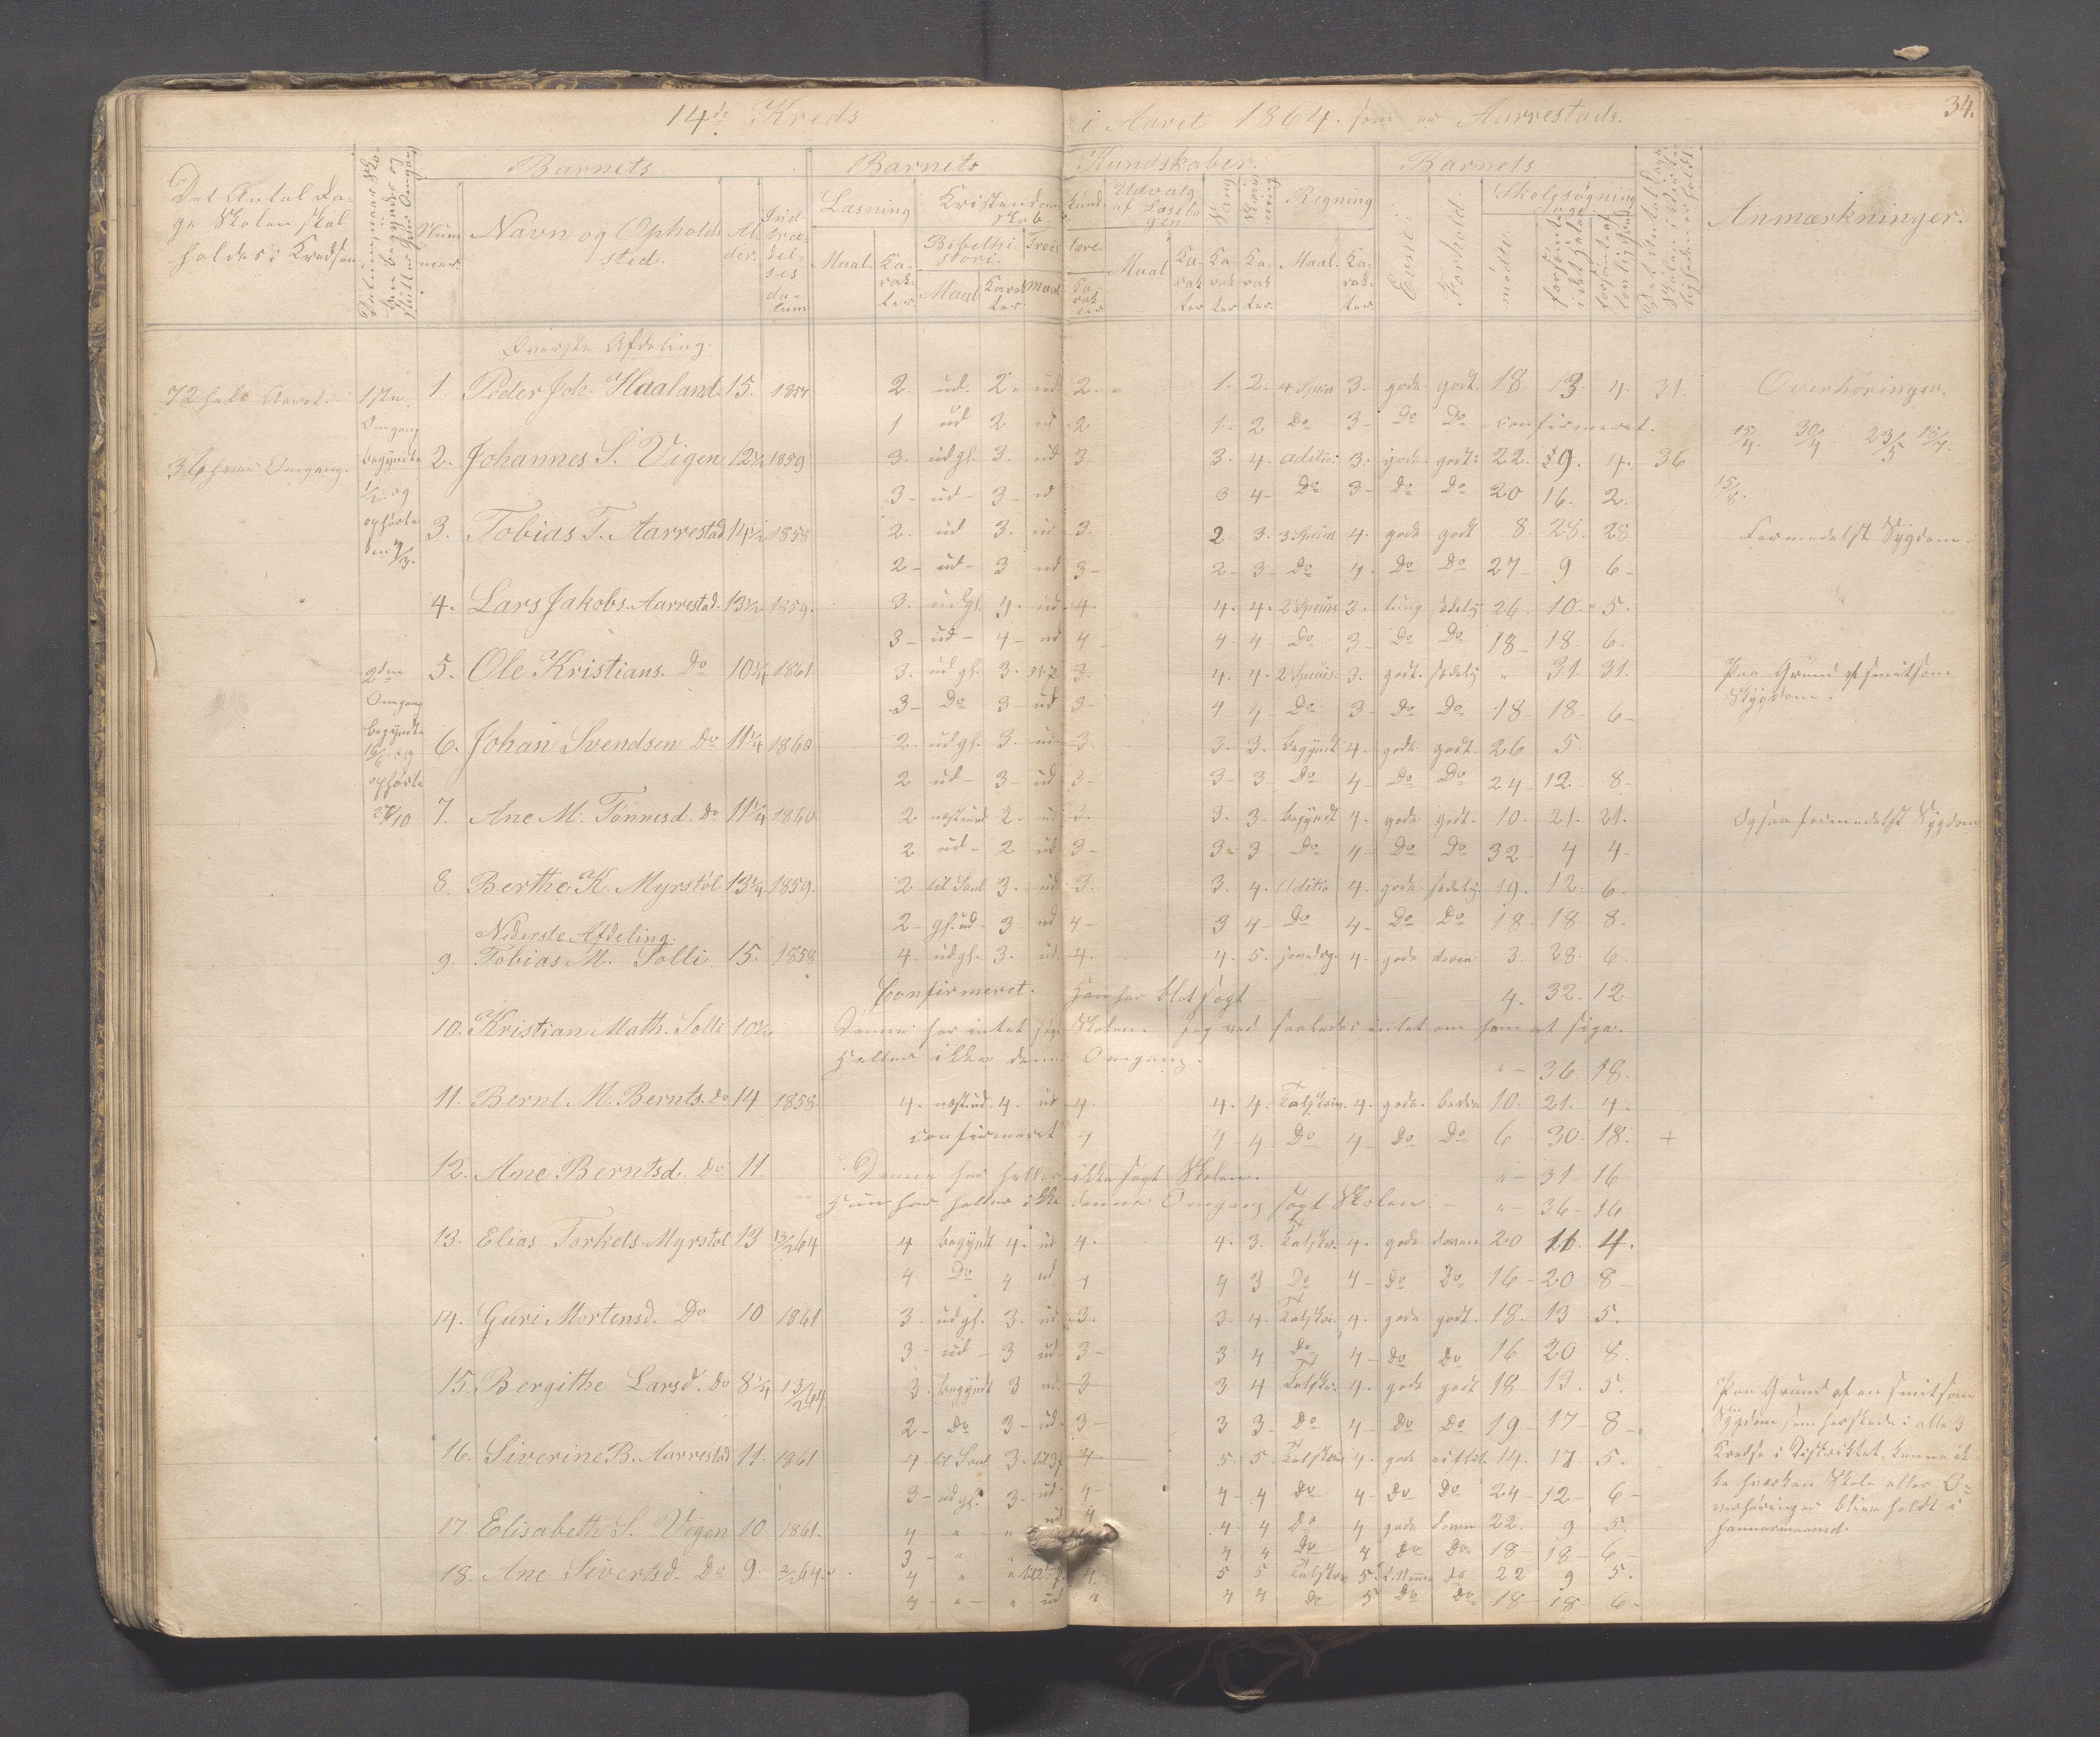 34.
14de Kreds i Aaret 1864. som er Aarrestads.
Barnets Barnets Kundskaber. Barnets
Det Antal Da-
ge Skolen skal
holdes i Kredsen
Num-
mer
Navn og Opholds-
sted.
Al-
der.
Ind-
træ-
del-
ses
da-
tum
Læsning Kristendoms Kund-
skab
Udvalg
af Læsebo
gen
Sang Skriv-
ning
Regning
Evne. Forhold
Skolesøgning
Dage
mødte. forsømte
Anmærkninger.
Maal. Ka-
rak-
ter.
Bibelhi-
stori.
Troes lære.
Maal Karak
ter.
Maal Ka-
rak
ter
Øverste Afdeling.
72 hele Aaret. 1ste 1. Peder Joh. Haaland 15. 1857 2. ud. 2. ud 2. 1. 2. 4 Spcies 3. gode godt. 18. 13 4. 31. Overhøringer.
Omgang 1 ud 2 ud 2 1- 2 Do 3- Do Do confirmeret.
15/4. 30/4 23/5 15/7.
36 hver Omgang. begyndte 2. Johannes S. Vigen 12½ 1859 3. udgl. 3. ud 3 3. 4. Aditio: 3. gode godt: 22. 9. 4. 36
1/2. og 3- ud- 3- ud 3 4- Do 3- Do Do 20 16. 2. 15/8.
ophørte 3. Tobias T. Aarrestad 14½ 1858 2. ud 3. ud 3. 2 3. 3 Spcies 4. gode godt 8. 28. 28 Formedelst Sygdom.
2- ud- 3 ud 3- 2- 3- Do 4. Do Do 27- 9 6-
4. Lars Jakobs. Aarrestad. 13½ 1859. 3. udgl. 4. ud. 4. 4. 4. 2 Spcies 3. tung sædelig 26. 10. 5.
3- ud- 4- ud 4 4 4 Do 3- Do Do 18- 18 6.
2den 5. Ole Kristians. Do 10¼ 1861 3. udgl. 3. 3. 4. 4. 2 Spcies. 3. godt. sædelig " 31. 31. Paa Grund af smitsom
Omgang 3- Do 3- ud 3- 4 4- Do 3- Do Do 18- 18- 6- Sygdom.
begyndte 6. Johan Svendsen Do 11¼ 1860 2. udgl. 3. ud 3 3. 3. begyndt 4. gode godt. 26 5.
ophørte 2 ud- 3- ud 3- 3- 3- Do 4- Do Do 24 12 8-
7. Ane M. Tønnesd. Do 11¼ 1860 2 næstud 2. ud 3. 3. 3. begyndt 4. gode godt. 10. 21. 21. Ogsaa formedelst Sygdom
2 ud- 2 ud 3- 3- 3- Do 4- Do Do 32- 4 4-
8. Berthe K. Myrstøl 13¼ 1859. 2 til Saul 3. ud. 3. 3. 4. Aditio 4. gode. sædelig. 19. 12. 6.
2- gl. ud- 3 ud 4- 3 4- Do 4- Do Do 18- 18 8.
Nederste Afdeling.
9. Tobias M. Solli. 15. 1858 4. udgl. 3. ud. 4. 4. 5. 4. gode doven 3. 28. 6.
Confirmeret. Han har blot søgt 4. 32. 12
10. Kristian Math. Solli 10½ Denne har intet søgt Skolen. Jeg ved saaledes intet om ham at sige.
Heller ikke denne Omgang. "- 36. 18.
11. Bernt M. Bernts. Do 14 1858. 4. næst.ud. 4. ud 4. 4. 4. Talskriv. 4. gode. 10. 21. 4.
confirmeret 4 4- 4 Do 4- Do Do 6 30- 18. +
12. Ane Berntsd. Do 11. Denne har heller ikke søgt Skolen. "- 31- 16
Hun har heller ikke denne Omgang søgt Skolen. "- 36- 16
13. Elias Torkels. Myrstøl 13 13/2 64 4 begyndt 4. ud 4. 4. 3. Talskr. 4. gode doven 20 11. 4.
4 Do 4 ud 4 4 3 Do 4- Do Do 16- 20 8-
14. Guri Mortensd. Do 10 1861 3. udgl. 3. ud. 3. 3. 4. Talskri. 4. gode godt. 18. 13 5.
3- ud- 3 ud- 3- 3 4 Do 4- Do Do 16 20 8.
15. Bergithe Larsd. Do 8¼ 13/2 64 3. begyndt 3 ud. 3 3 4 Talskr. 4. gode godt 18 13. 5.
2- Do 3- ud- 3- 3 3- Do 4- Do Do 19- 17- 8-
16. Siverine B. Aarrestad 11. 1861 4. til Saul 3. 4. 5. 5. Talskriv 4. gode 14. 17 5.
3- udgl. 3- ud- 4- 4- 4 Do 4- Do Do 24- 12- 6-
17. Elisabeth S. Vigen 10 1861. 4 " " ud 4 4. 4 Do 4 gode doven 22. 9 5.
3- " " 4 4 Do 4 Do Do 18- 18- 6-
18. Ane Sivertsd. Do 9. 2/2 64. 4 " " 4. 5 5 Talskr. 5. Do 22 9 5.
4- "- " ud " 4 4 Do 5 Do Do. 18- 18- 6-
Paa Grund af en smitsom
Sygdom som herskede i alle 3
Kredse i Distriktet, kunne ik-
ke hverken Skole eller O-
verhøringer blive holdt i